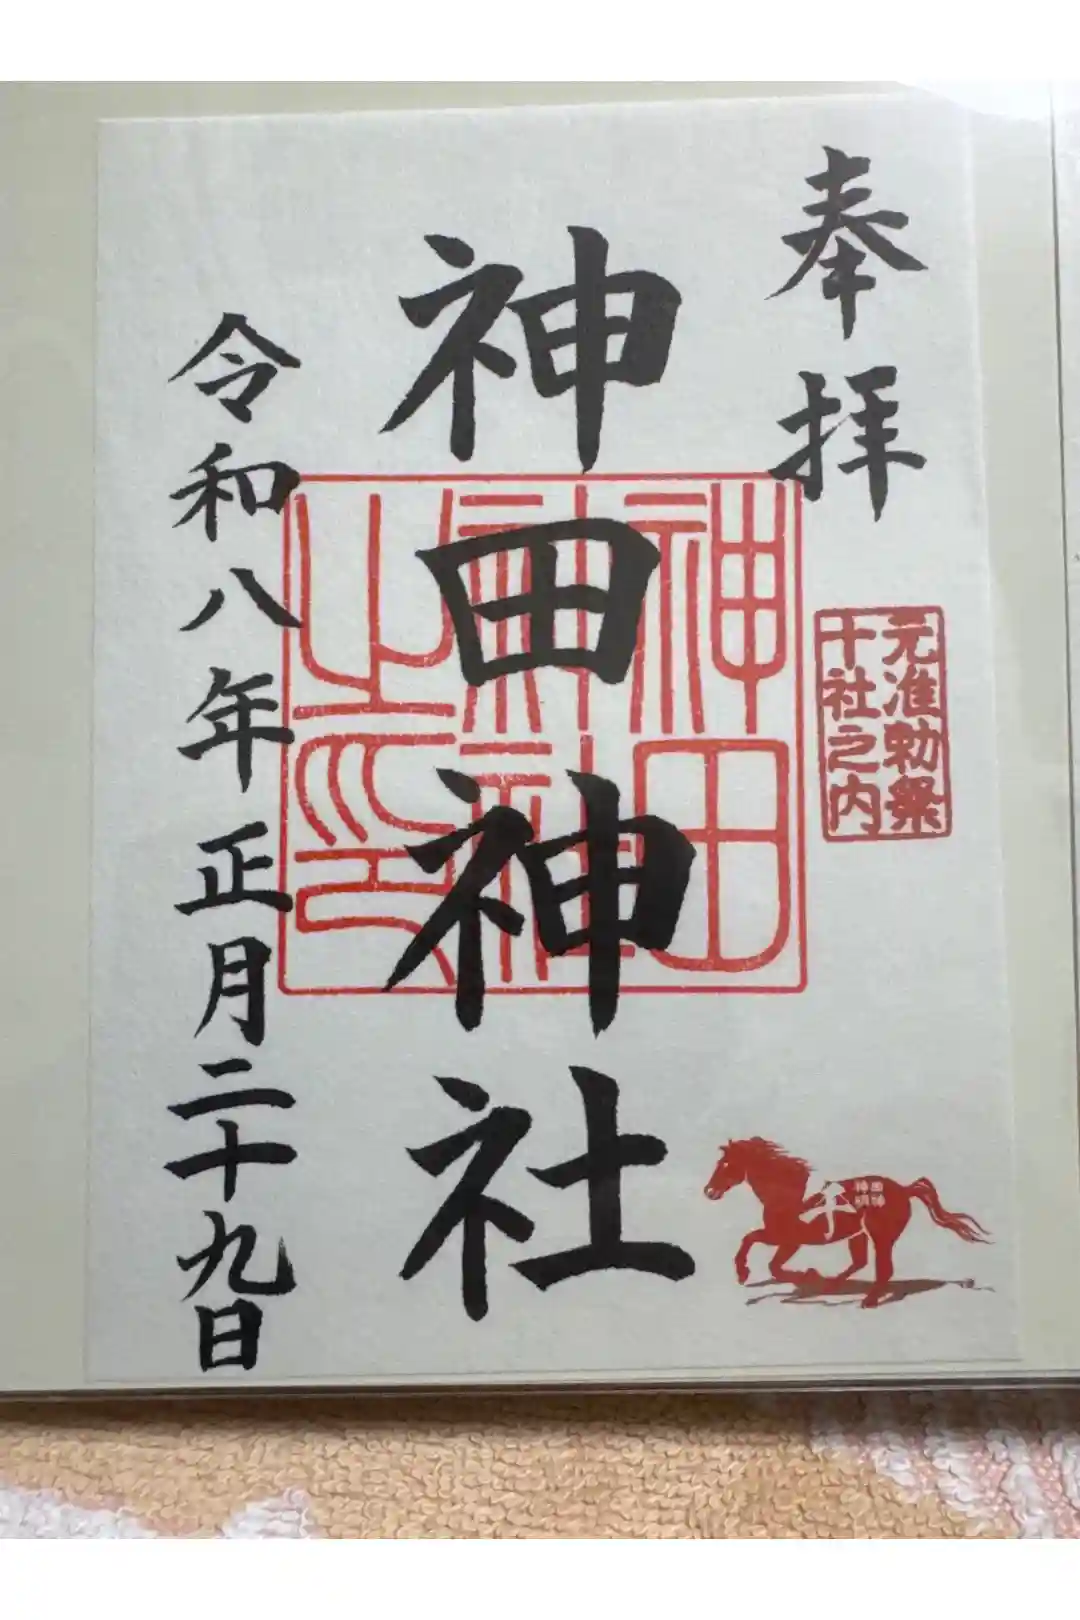 奉拝
元准勅祭
十社之内
神田神社
神田
神社
之印
令和八年正月二十九日
午